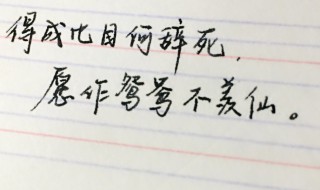 得成比目何辞死，
愿作鸳鸯不羡仙。